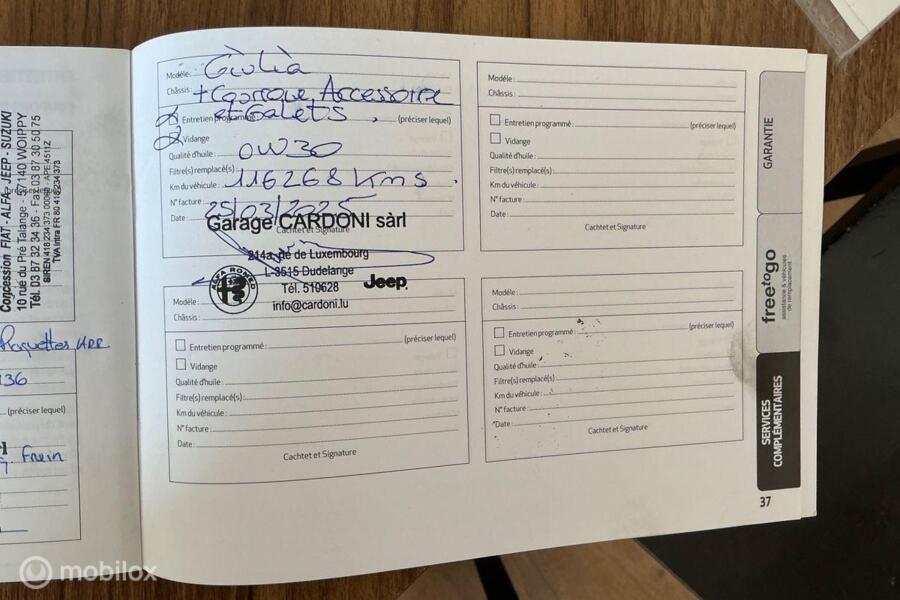 Concession FIAT - ALFA - JEEP - SUZUKI
10 rue du Pré Talange - 57140 WOIPPY
Tél. 03 87 32 34 36 - Fax 03 87 30 50 75
SIREN 418 234 373 00069 - APE 4511Z
TVA Intra FR 80 418 234 373
Plaquettes ARR
136
(préciser lequel)
Frein
Modèle : Giulia
Châssis : + Courroie Accessoire
Entretien programmé et Galets. (préciser lequel)
Vidange
Qualité d'huile : 0W30
Filtre(s) remplacé(s) :
Km du véhicule : 116268 Kms.
N° facture :
Date : 25/03/2025
Cachet et Signature
Garage CARDONI sàrl
214a, de Luxembourg
L-3515 Dudelange
Tél. 519628
info@cardoni.lu
ALFA ROMEO
Jeep
Modèle :
Châssis :
Entretien programmé : (préciser lequel)
Vidange
Qualité d'huile :
Filtre(s) remplacé(s) :
Km du véhicule :
N° facture :
Date :
Cachtet et Signature
Modèle :
Châssis :
Entretien programmé : (préciser lequel)
Vidange
Qualité d'huile :
Filtre(s) remplacé(s) :
Km du véhicule :
N° facture :
Date :
Cachtet et Signature
Modèle :
Châssis :
Entretien programmé : (préciser lequel)
Vidange
Qualité d'huile :
Filtre(s) remplacé(s) :
Km du véhicule :
N° facture :
Date :
Cachtet et Signature
GARANTIE
freetogo
assistance & véhicules
de remplacement
SERVICES
COMPLÉMENTAIRES
37
mobilox